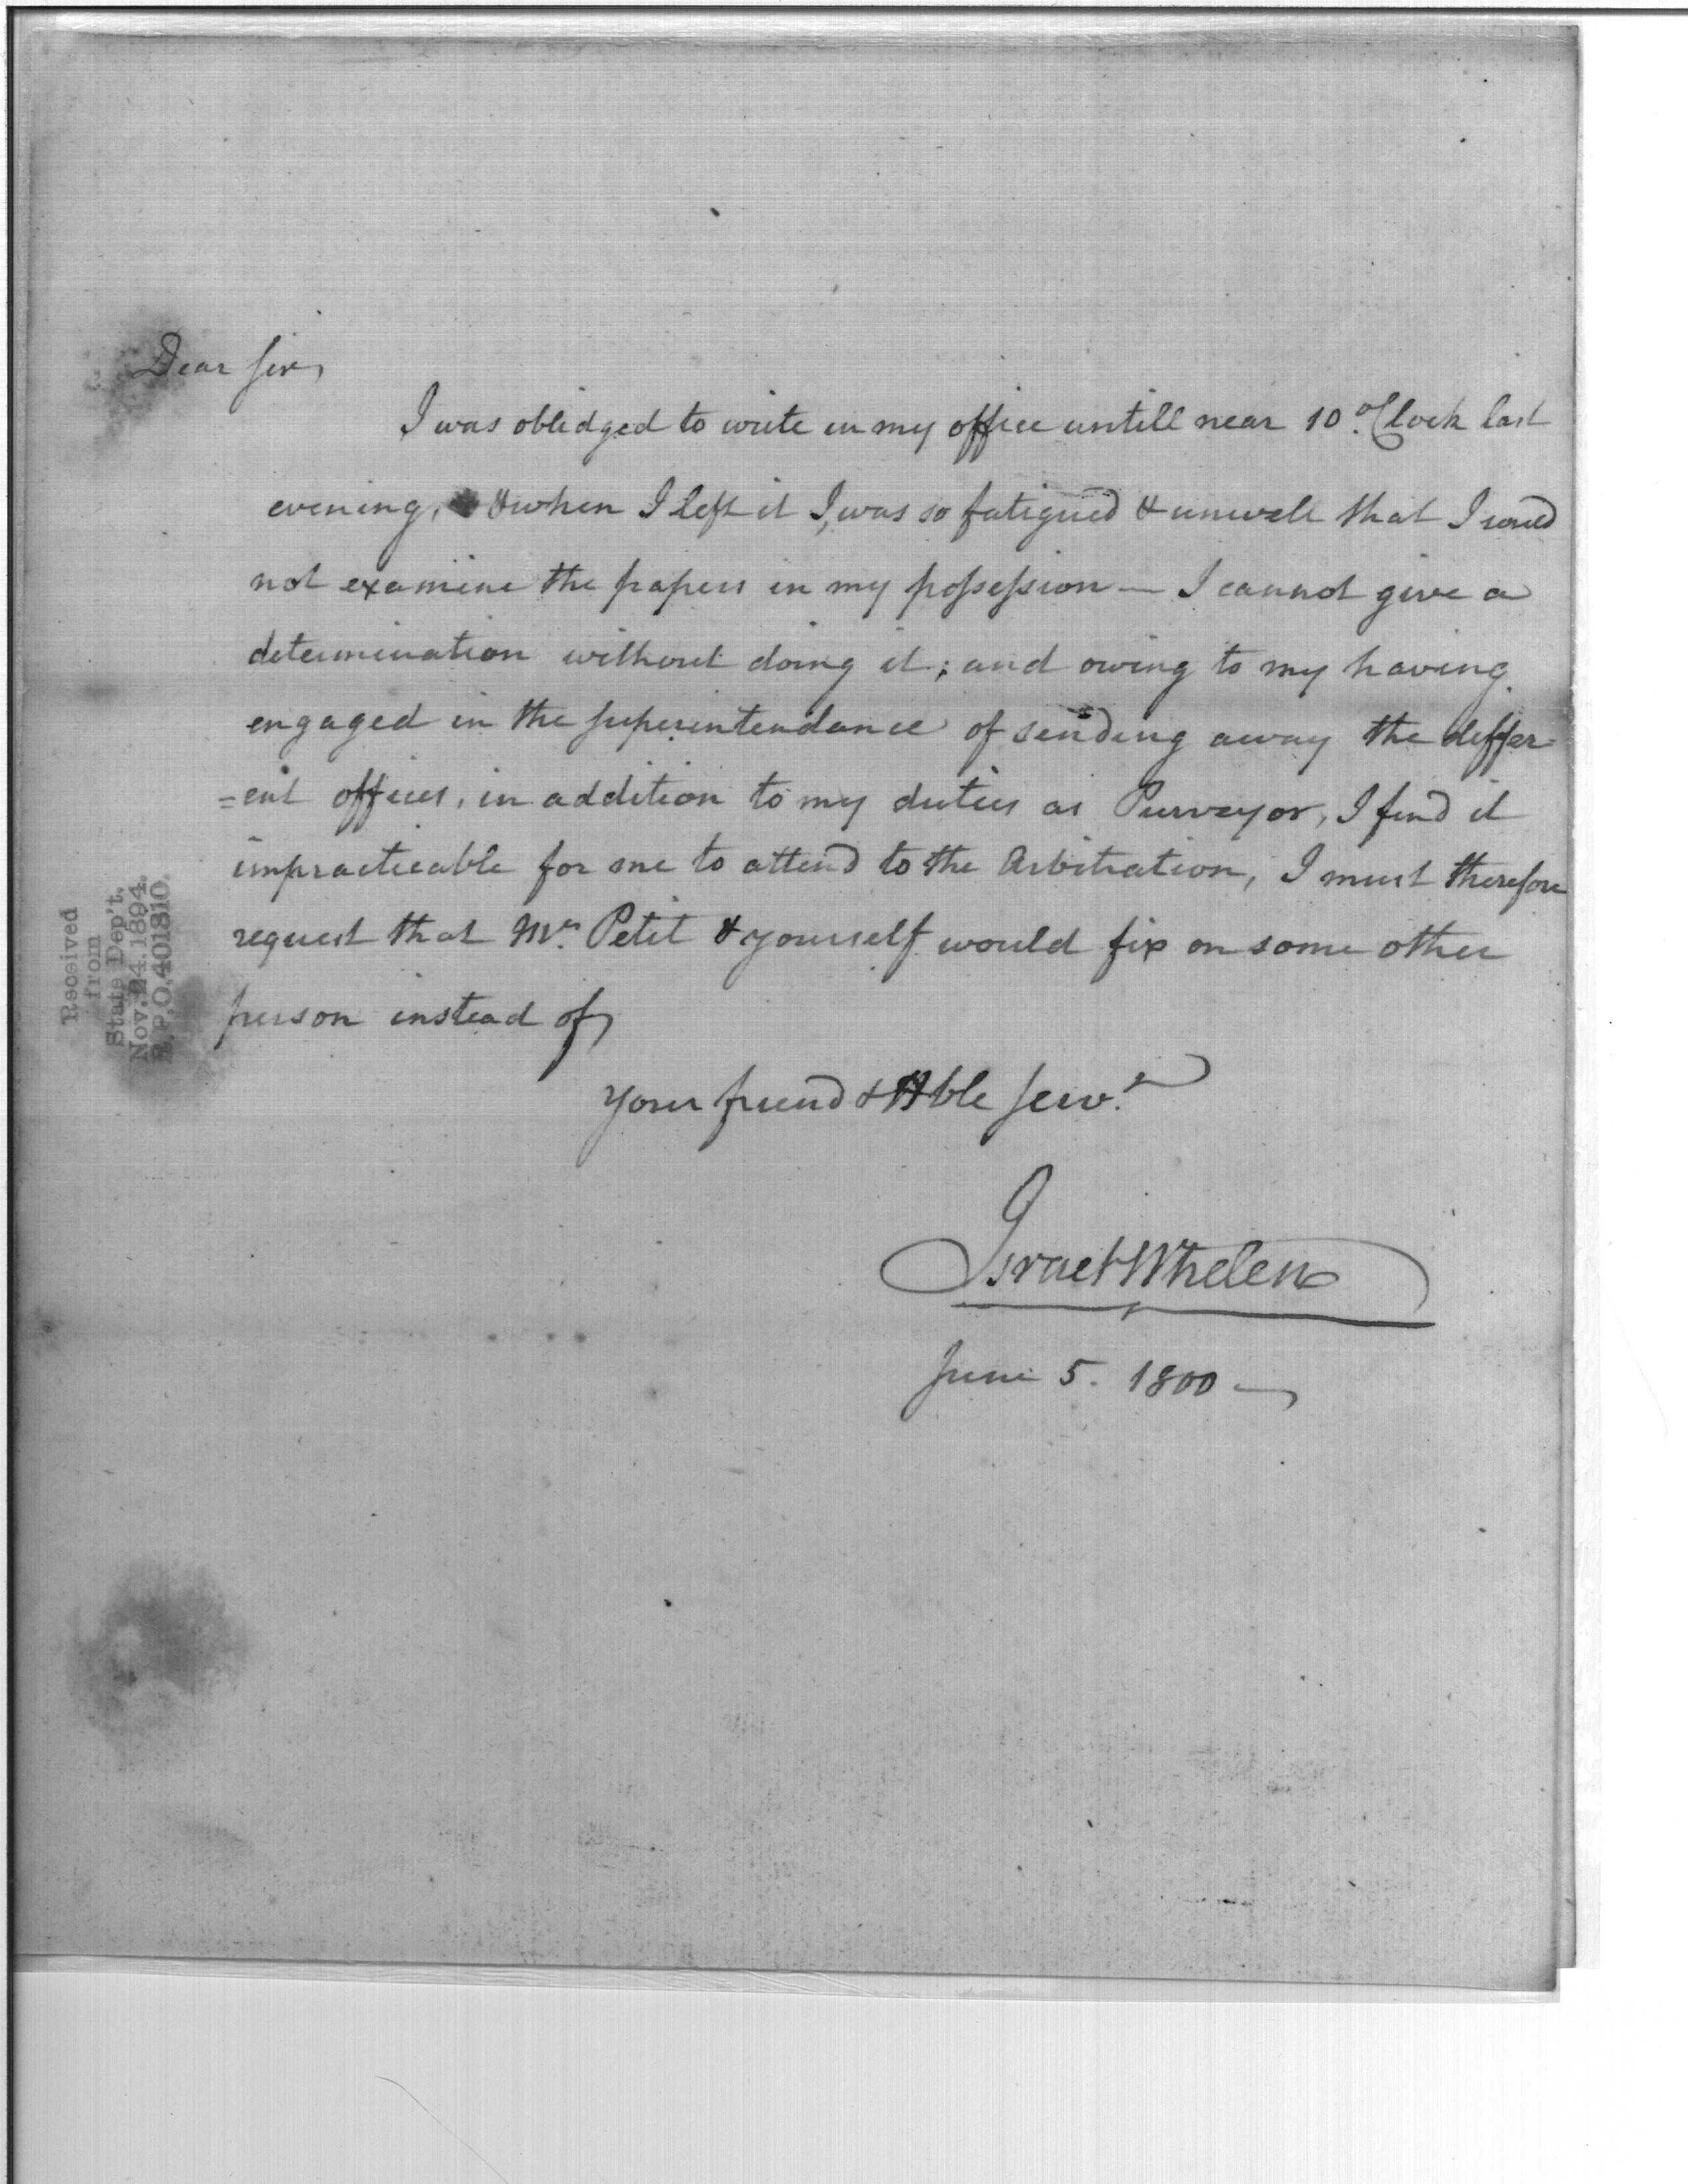 Dear Sir,
I was oblidged to write in my office untill near 10 o'Clock last
evening, & when I left it I, was so fatigued & unwell that I could
not examine the papers in my possession — I cannot give a
determination without doing it; and owing to my having
engaged in the superintendance of sending away the differ=
=ent offices, in addition to my duties as Purveyor, I find it
impracticable for me to attend to the Arbitration, I must therefore
request that Mr. Petit & yourself would fix on some other
person instead of
your friend & Hble Serv.t
Israel Whelen
June 5. 1800 —
Received
from
State Dep't.
Nov. 24. 1894.
R.P.O. 401810.